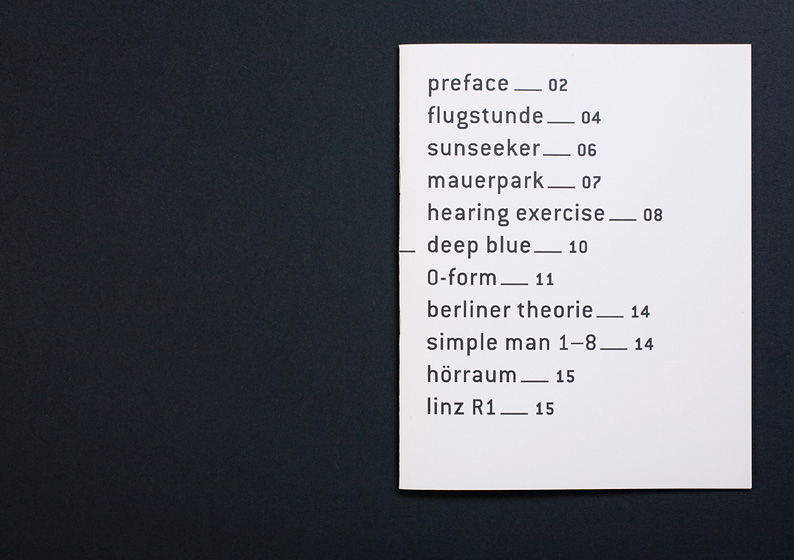 preface__ 02
flugstunde__ 04
sunseeker__ 06
mauerpark__ 07
hearing exercise__ 08
deep blue__ 10
0-form__ 11
berliner theorie__ 14
simple man 1–8__ 14
hörraum__ 15
linz R1__ 15